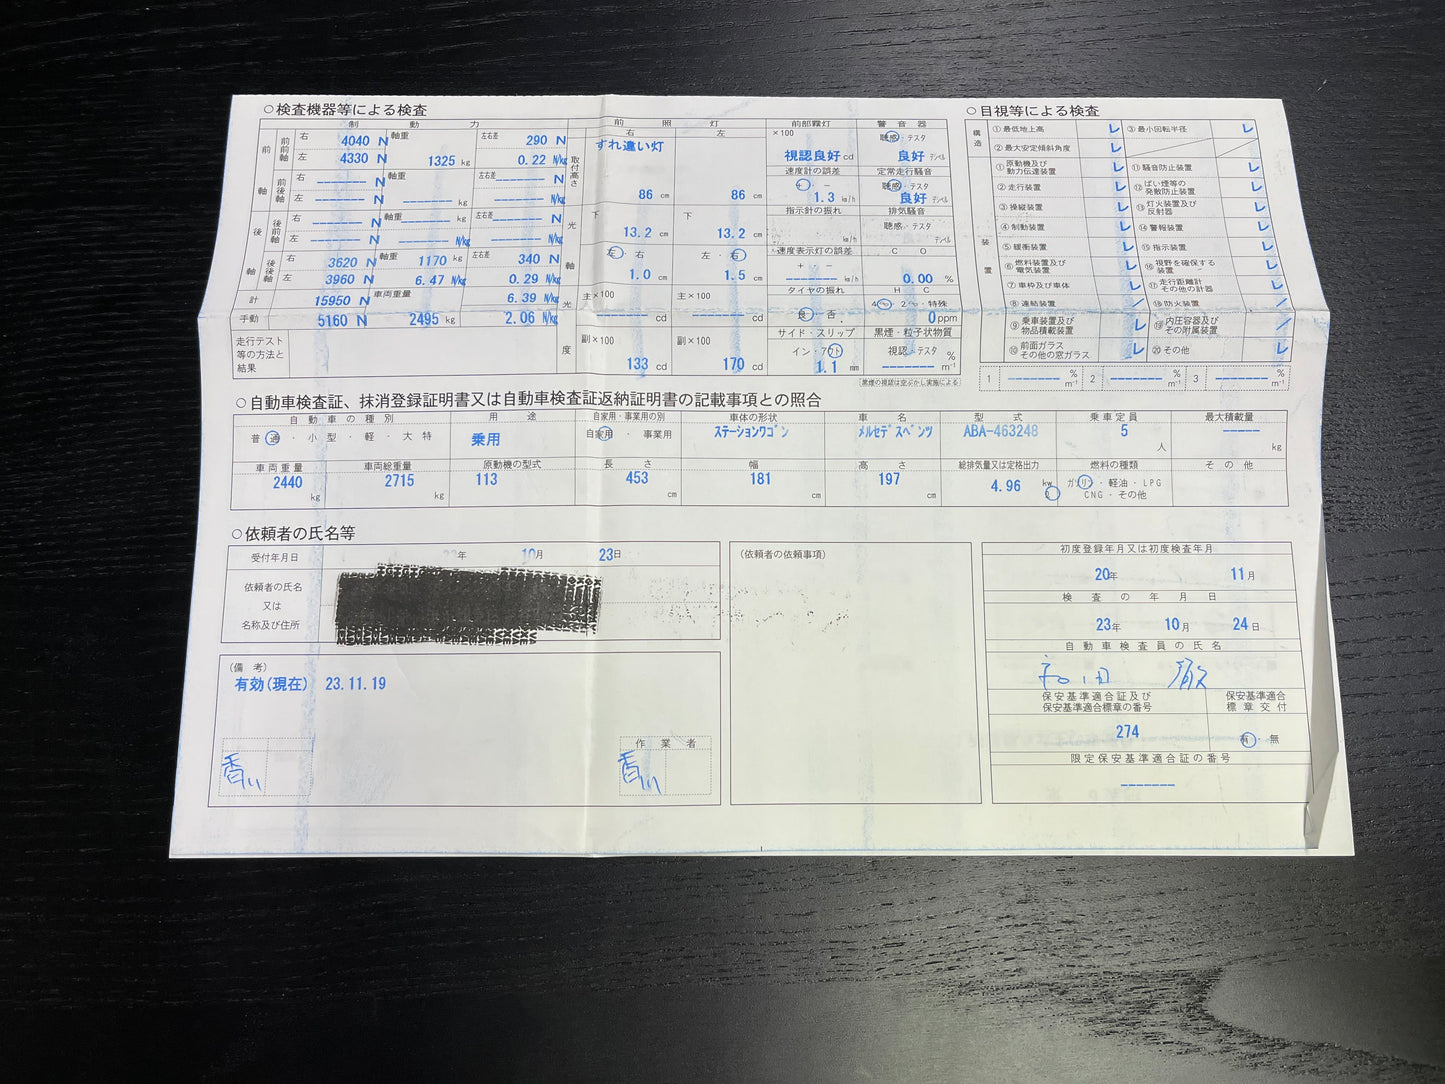 ○検査機器等による検査
制動力
前軸 前前軸 右 4040 N 軸重 左右差 290 N
左 4330 N 1325 kg 0.22 N/kg
前後軸 右 ------- N 軸重 左右差 ------- N
左 ------- N ------- kg ------- N/kg
後軸 後前軸 右 ------- N 軸重 ------- kg 左右差 ------- N
左 ------- N ------- N/kg ------- N/kg
後後軸 右 3620 N 軸重 1170 kg 左右差 340 N
左 3960 N 6.47 N/kg 0.29 N/kg
計 15950 N 車両重量 6.39 N/kg
手動 5160 N 2495 kg 2.06 N/kg
走行テスト等の方法と結果
前照灯
右 左
すれ違い灯
取付高さ 86 cm 86 cm
光軸 下 13.2 cm 下 13.2 cm
左・右 1.0 cm 左・右 1.5 cm
光度 主×100 ------ cd 主×100 ------ cd
副×100 133 cd 副×100 170 cd
前部霧灯
×100
視認良好 cd
速度計の誤差
+ -
1.3 km/h
指示計の振れ
km/h
速度表示灯の誤差
+ -
------- km/h
タイヤの振れ
良・否
サイド・スリップ
イン・アウト
1.1 mm
警音器
聴感・テスタ
良好 デシベル
定常走行騒音
聴感・テスタ
良好 デシベル
排気騒音
聴感・テスタ
デシベル
CO
0.00 %
HC
4~・2~・特殊
0 ppm
黒煙・粒子状物質
視認・テスタ %
------- m⁻¹
黒煙の視認は空ぶかし実施による
○目視等による検査
構造
①最低地上高 レ
②最大安定傾斜角度 レ
③最小回転半径 レ
装置
①原動機及び動力伝達装置 レ
②走行装置 レ
③操縦装置 レ
④制動装置 レ
⑤緩衝装置 レ
⑥燃料装置及び電気装置 レ
⑦車枠及び車体 レ
⑧連結装置 /
⑨乗車装置及び物品積載装置 レ
⑩前面ガラスその他の窓ガラス レ
⑪騒音防止装置 レ
⑫ばい煙等の発散防止装置 レ
⑬灯火装置及び反射器 レ
⑭警報装置 レ
⑮指示装置 レ
⑯視野を確保する装置 レ
⑰走行距離計その他の計器 レ
⑱防火装置 /
⑲内圧容器及びその附属装置 /
⑳その他 レ
1 ------- % m⁻¹ 2 ------- % m⁻¹ 3 ------- % m⁻¹
○自動車検査証、抹消登録証明書又は自動車検査証返納証明書の記載事項との照合
自動車の種別 用途 自家用・事業用の別 車体の形状 車名 型式 乗車定員 最大積載量
普通・小型・軽・大特 乗用 自家用・事業用 ステーションワゴン メルセデスベンツ ABA-463248 5 人 ----- kg
車両重量 車両総重量 原動機の型式 長さ 幅 高さ 総排気量又は定格出力 燃料の種類 その他
2440 kg 2715 kg 113 453 cm 181 cm 197 cm 4.96 kw ガソリン・軽油・LPG
CNG・その他
○依頼者の氏名等
受付年月日 年 10月 23日
依頼者の氏名
又は
名称及び住所
(備考)
有効(現在) 23.11.19
香川
作業者
香川
(依頼者の依頼事項)
初度登録年月又は初度検査年月
20年 11月
検査の年月日
23年 10月 24日
自動車検査員の氏名
保安基準適合証及び
保安基準適合標章の番号
保安基準適合
標章交付
274 有・無
限定保安基準適合証の番号
-------